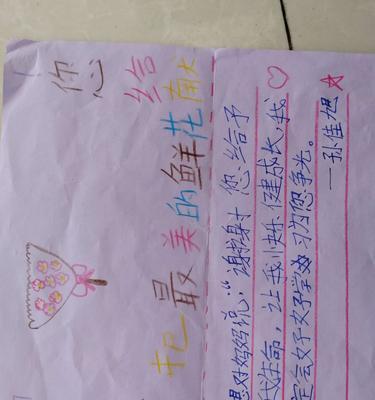 把最美的鲜花献
给
您
想对妈妈说：“谢谢您给予
我生命，让我快乐健成长，我
定会好好学习为您争光。
—孙佳旭